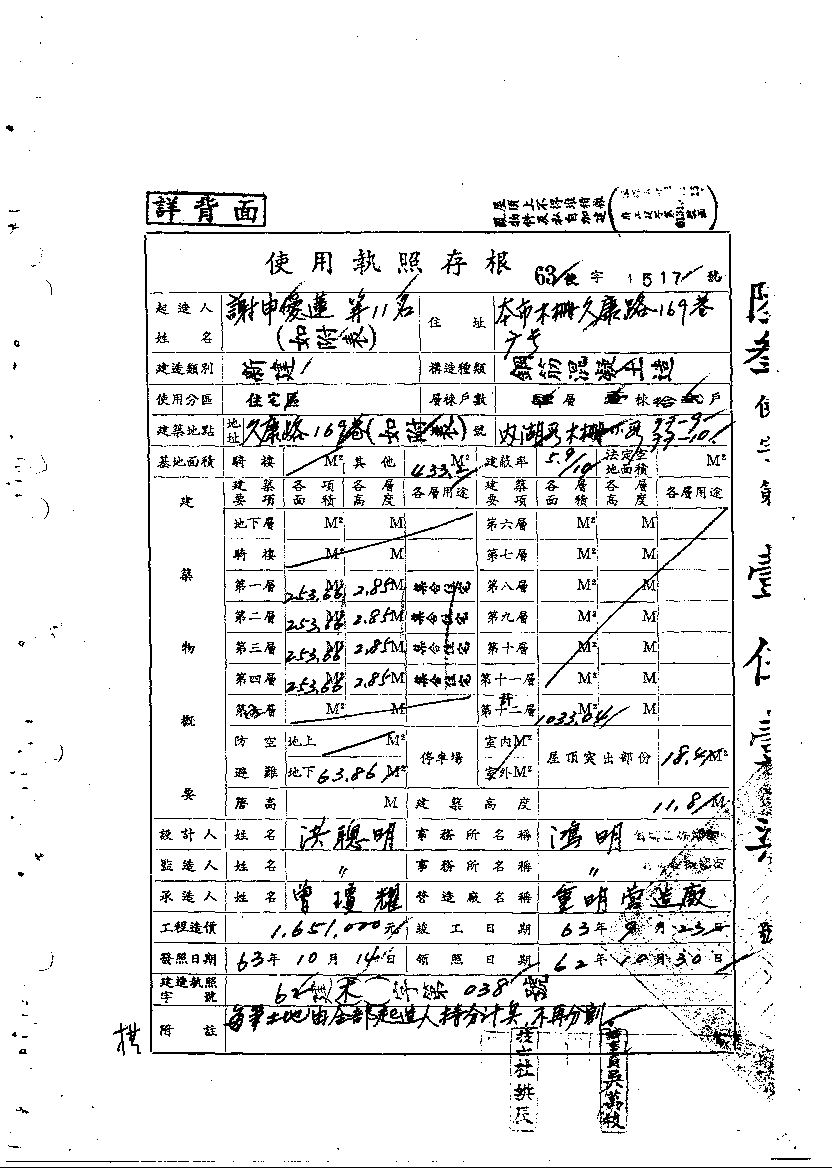 詳背面
屋頂上不得堆積雜
物件及私自加建
使用執照存根 63使字 1517號
起造人姓名 謝申優蓮 等11名(如附表) 住址 本市木柵久康路169巷
建造類別 新建 構造種類 鋼筋混凝土造
使用分區 住宅區 層棟戶數 層 棟 拾 戶
建築地點 地址 久康路169巷 號 內湖 木柵 33-9 33-10
基地面積 騎樓 M² 其他 433. M² 建蔽率 5.9/10 法定空地面積 M²
建築物概要 建築要項 各項面積 各層高度 各層用途 建築要項 各層面積 各層高度 各層用途
地下層 M² M 第六層 M² M
騎樓 M² M 第七層 M² M
第一層 253.66M² 2.85M 集合住宅 第八層 M² M
第二層 253.66M² 2.85M 集合住宅 第九層 M² M
第三層 253.66M² 2.85M 集合住宅 第十層 M² M
第四層 253.66M² 2.85M 集合住宅 第十一層 M² M
第五層 M² M 第十二層 計 1033.04M² M
防空避難 地上 M² 停車場 室內M² 屋頂突出部份 18.4M²
地下 63.86M² 室外M²
簷高 M 建築高度 11.8M
設計人 姓名 洪聰明 事務所名稱 鴻明
監造人 姓名 〃 事務所名稱 〃
承造人 姓名 曾瓊耀 營造廠名稱 重明營造廠
工程造價 1,651,000元 竣工日期 63年9月23日
發照日期 63年10月14日 領照日期 62年10月30日
建造執照字號 62建(木)字第038號
附註 每筆土地由全部起造人持分計算,不再分割